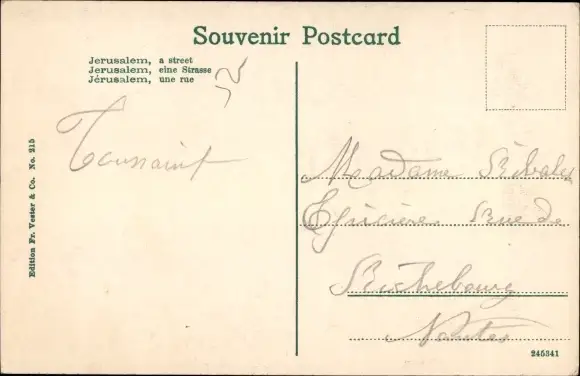 Souvenir Postcard
Jerusalem, a street
Jerusalem, eine Strasse
Jérusalem, une rue
Toussaint
Edition Fr. Vester & Co. No. 215
Madame Ribales
Epicière Rue de
Richebourg
Nantes
245341